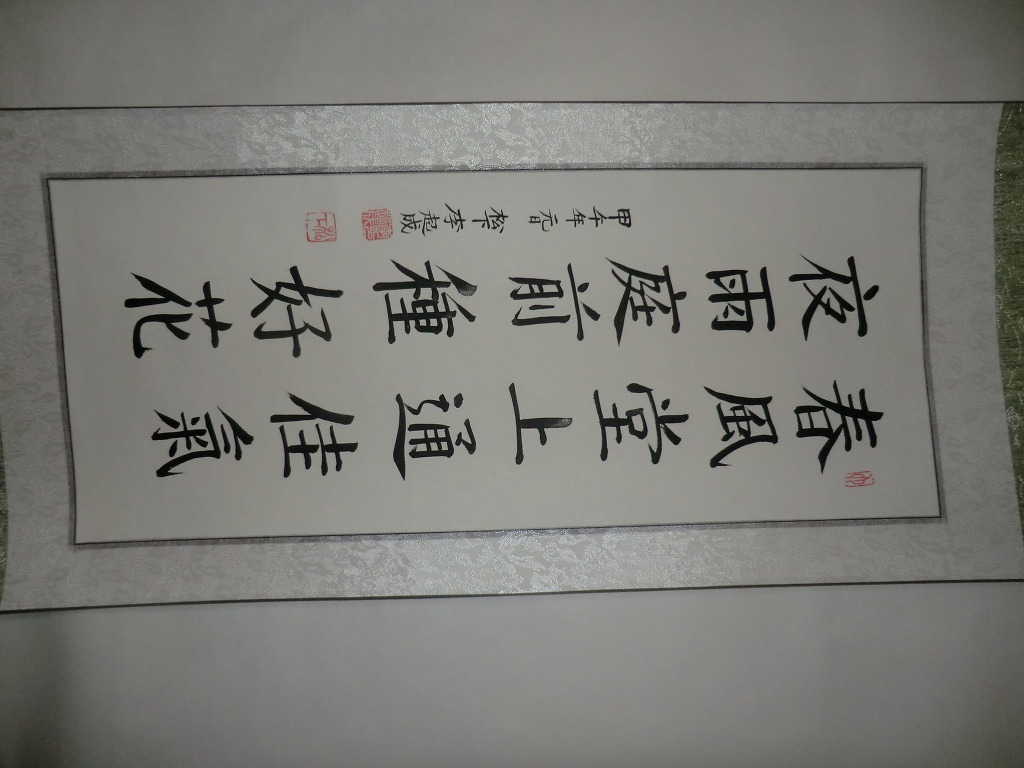 春風堂上通佳氣
夜雨庭前種好花
甲午年元月 李彪成